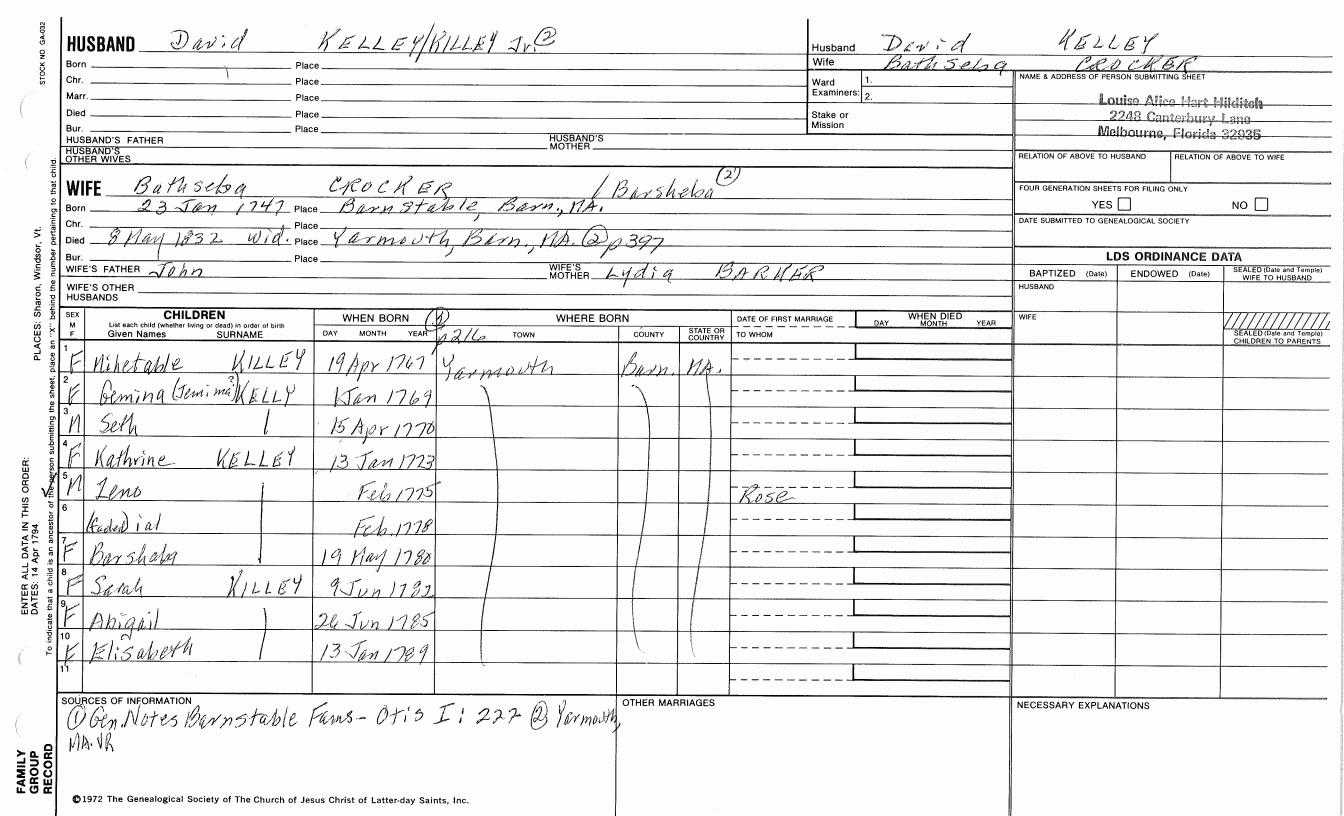 STOCK NO GA-032
HUSBAND David KELLEY/KILLEY Jr. ②
Born Place
Chr. Place
Marr. Place
Died Place
Bur. Place
HUSBAND'S FATHER HUSBAND'S MOTHER
HUSBAND'S OTHER WIVES
Husband David KELLEY
Wife Bathseba CROCKER
Ward Examiners: 1.
2.
Stake or Mission
NAME & ADDRESS OF PERSON SUBMITTING SHEET
Louise Alice Hart Hilditch
2248 Canterbury Lane
Melbourne, Florida 32935
RELATION OF ABOVE TO HUSBAND RELATION OF ABOVE TO WIFE
FOUR GENERATION SHEETS FOR FILING ONLY
YES NO
DATE SUBMITTED TO GENEALOGICAL SOCIETY
WIFE Bathseba CROCKER / Barsheba ②
Born 23 Jan 1747 Place Barnstable, Barn., MA.
Chr. Place
Died 8 May 1832 wid. Place Yarmouth, Barn., MA. ② p397
Bur. Place
WIFE'S FATHER John WIFE'S MOTHER Lydia BARKER
WIFE'S OTHER HUSBANDS
LDS ORDINANCE DATA
BAPTIZED (Date) ENDOWED (Date) SEALED (Date and Temple) WIFE TO HUSBAND
HUSBAND
WIFE
SEALED (Date and Temple) CHILDREN TO PARENTS
SEX M F
CHILDREN
List each child (whether living or dead) in order of birth
Given Names SURNAME
WHEN BORN
DAY MONTH YEAR
p216
WHERE BORN
TOWN COUNTY STATE OR COUNTRY
DATE OF FIRST MARRIAGE
TO WHOM
WHEN DIED
DAY MONTH YEAR
1 F Mihetable KILLEY 19 Apr 1767 Yarmouth Barn. MA.
2 F Gemina (Jemima?) KELLY 1 Jan 1769
3 M Seth 15 Apr 1770
4 F Kathrine KELLEY 13 Jan 1773
5 M Zeno Feb 1775 Rose
6 (faded) ial Feb. 1778
7 F Barsheba 19 May 1780
8 F Sarah KILLEY 9 Jun 1782
9 F Abigail 26 Jun 1785
10 F Elisabeth 13 Jan 1789
11
SOURCES OF INFORMATION
① Gen. Notes Barnstable Fams - Otis I: 222 ② Yarmouth,
MA. VR
OTHER MARRIAGES
NECESSARY EXPLANATIONS
©1972 The Genealogical Society of The Church of Jesus Christ of Latter-day Saints, Inc.
FAMILY GROUP RECORD
ENTER ALL DATA IN THIS ORDER:
DATES: 14 Apr 1794
PLACES: Sharon, Windsor, Vt.
To indicate that a child is an ancestor of the person submitting the sheet, place an "X" behind the number pertaining to that child.